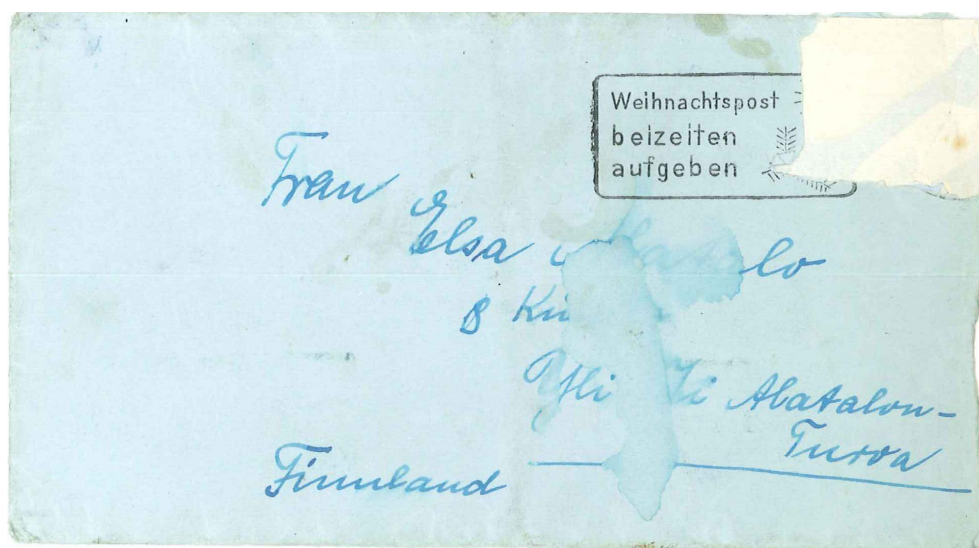 Weihnachtspost
beizeiten
aufgeben
Frau
Elsa
8
Yli Ii Alatalon-
Turva
Finnland